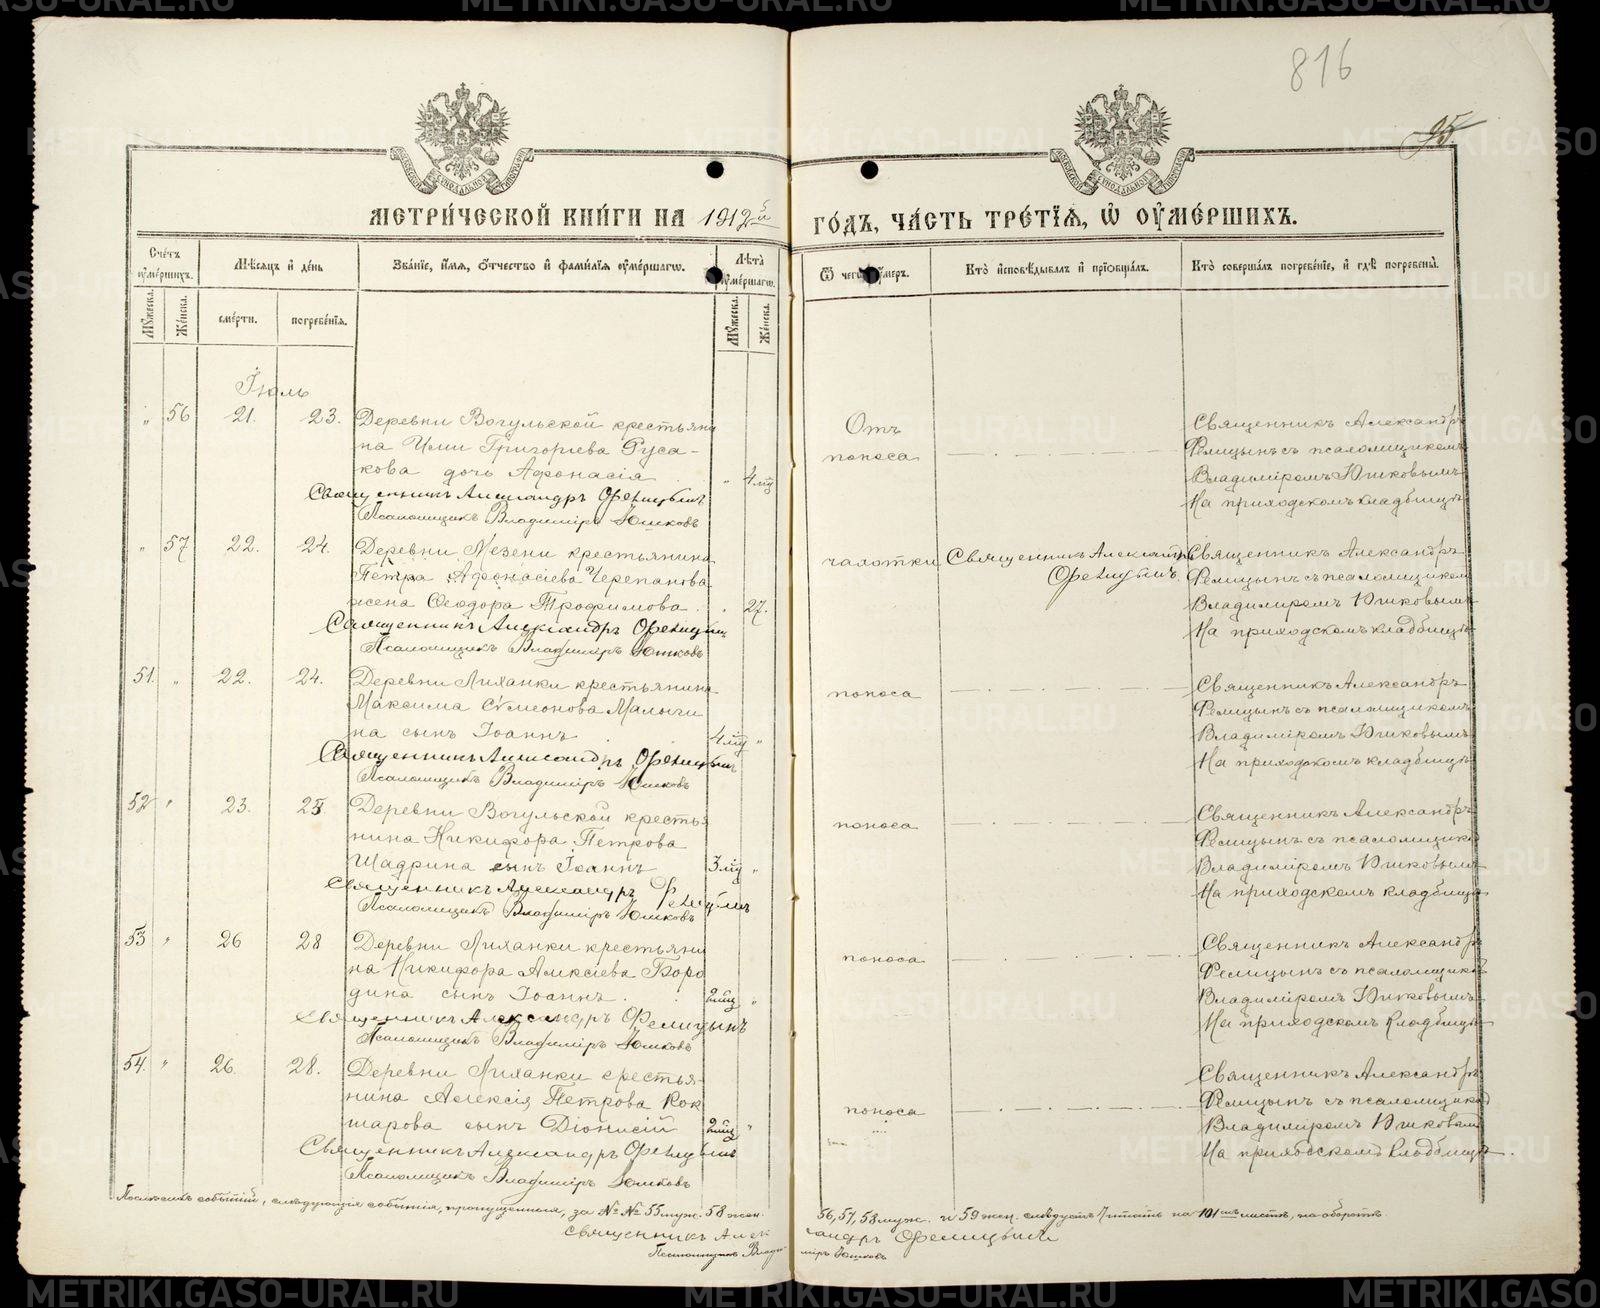 816
95.
МЕТРИ́ЧЕСКОЙ КНИ́ГИ НА 1912й ГО́ДЪ, ЧА́СТЬ ТРЕ́ТІѦ, Ѡ҆ ОУ҆МЕ́РШИХЪ.
Сче́тъ оу҆ме́ршихъ.
Мѣ́сяцъ и҆ де́нь
Зва́ніе, и҆́мя, о҆́тчество и҆ фами́лія оу҆ме́ршагѡ.
Лѣ́та оу҆ме́ршагѡ.
Ѿ чегѡ̀ оу҆́меръ.
Кто̀ и҆сповѣ́дывалъ и҆ прїобща́лъ.
Кто̀ соверша́лъ погребе́ніе, и҆ гдѣ̀ погребены̀.
Му́жеска.
Же́нска.
сме́рти.
погребе́нія.
Му́жеска.
Же́нска.
Іюль
" 56 21. 23. Деревни Вогульской крестьяни
на Григоріева Руса-
кова дочь Афонасія " 4 мц
Священникъ Александръ Фелицынъ
Псаломщикъ Владиміръ Юшковъ
Отъ
поноса
Священникъ Александръ
Фелицынъ съ псаломщикомъ
Владиміромъ Юшковымъ
На приходскомъ кладбищѣ
" 57 22. 24. Деревни Мезени крестьянина
Петра Афонасіева Черепанова
жена Ѳеодора Трофимова " 27.
Священникъ Александръ Фелицынъ
Псаломщикъ Владиміръ Юшковъ
чахотки
Священникъ Александръ
Фелицынъ
Священникъ Александръ
Фелицынъ съ псаломщикомъ
Владиміромъ Юшковымъ
На приходскомъ кладбищѣ
51. " 22. 24. Деревни Лиханки крестьянина
Максима Сѵмеонова Малыги
на сынъ Іоаннъ 4 мц "
Священникъ Александръ Фелицынъ
Псаломщикъ Владиміръ Юшковъ
поноса
Священникъ Александръ
Фелицынъ съ псаломщикомъ
Владиміромъ Юшковымъ
На приходскомъ кладбищѣ
52 " 23. 25. Деревни Вогульской крестья
нина Никифора Петрова
Шадрина сынъ Іоаннъ 3 мц "
Священникъ Александръ Фелицынъ
Псаломщикъ Владиміръ Юшковъ
поноса
Священникъ Александръ
Фелицынъ съ псаломщикомъ
Владиміромъ Юшковымъ
На приходскомъ кладбищѣ
53 " 26 28 Деревни Лиханки крестьяни
на Никифора Алексіева Боро
дина сынъ Іоаннъ 2 мц "
Священникъ Александръ Фелицынъ
Псаломщикъ Владиміръ Юшковъ
поноса
Священникъ Александръ
Фелицынъ съ псаломщикомъ
Владиміромъ Юшковымъ
На приходскомъ кладбищѣ
54. " 26. 28. Деревни Лиханки крестья-
нина Алексія Петрова Кок
шарова сынъ Діонисій 2 мц "
Священникъ Александръ Фелицынъ
Псаломщикъ Владиміръ Юшковъ
поноса
Священникъ Александръ
Фелицынъ съ псаломщикомъ
Владиміромъ Юшковымъ
На приходскомъ кладбищѣ
событій, слѣдующія событія, пропущенныя, за №№ 55 муж. 58 жен. 56, 57, 58 муж. и 59 жен. слѣдуетъ читать на 101мъ листѣ, на оборотѣ.
Священникъ Александръ Фелицынъ
Псаломщикъ Владиміръ Юшковъ
METRIKI.GASO-URAL.RU